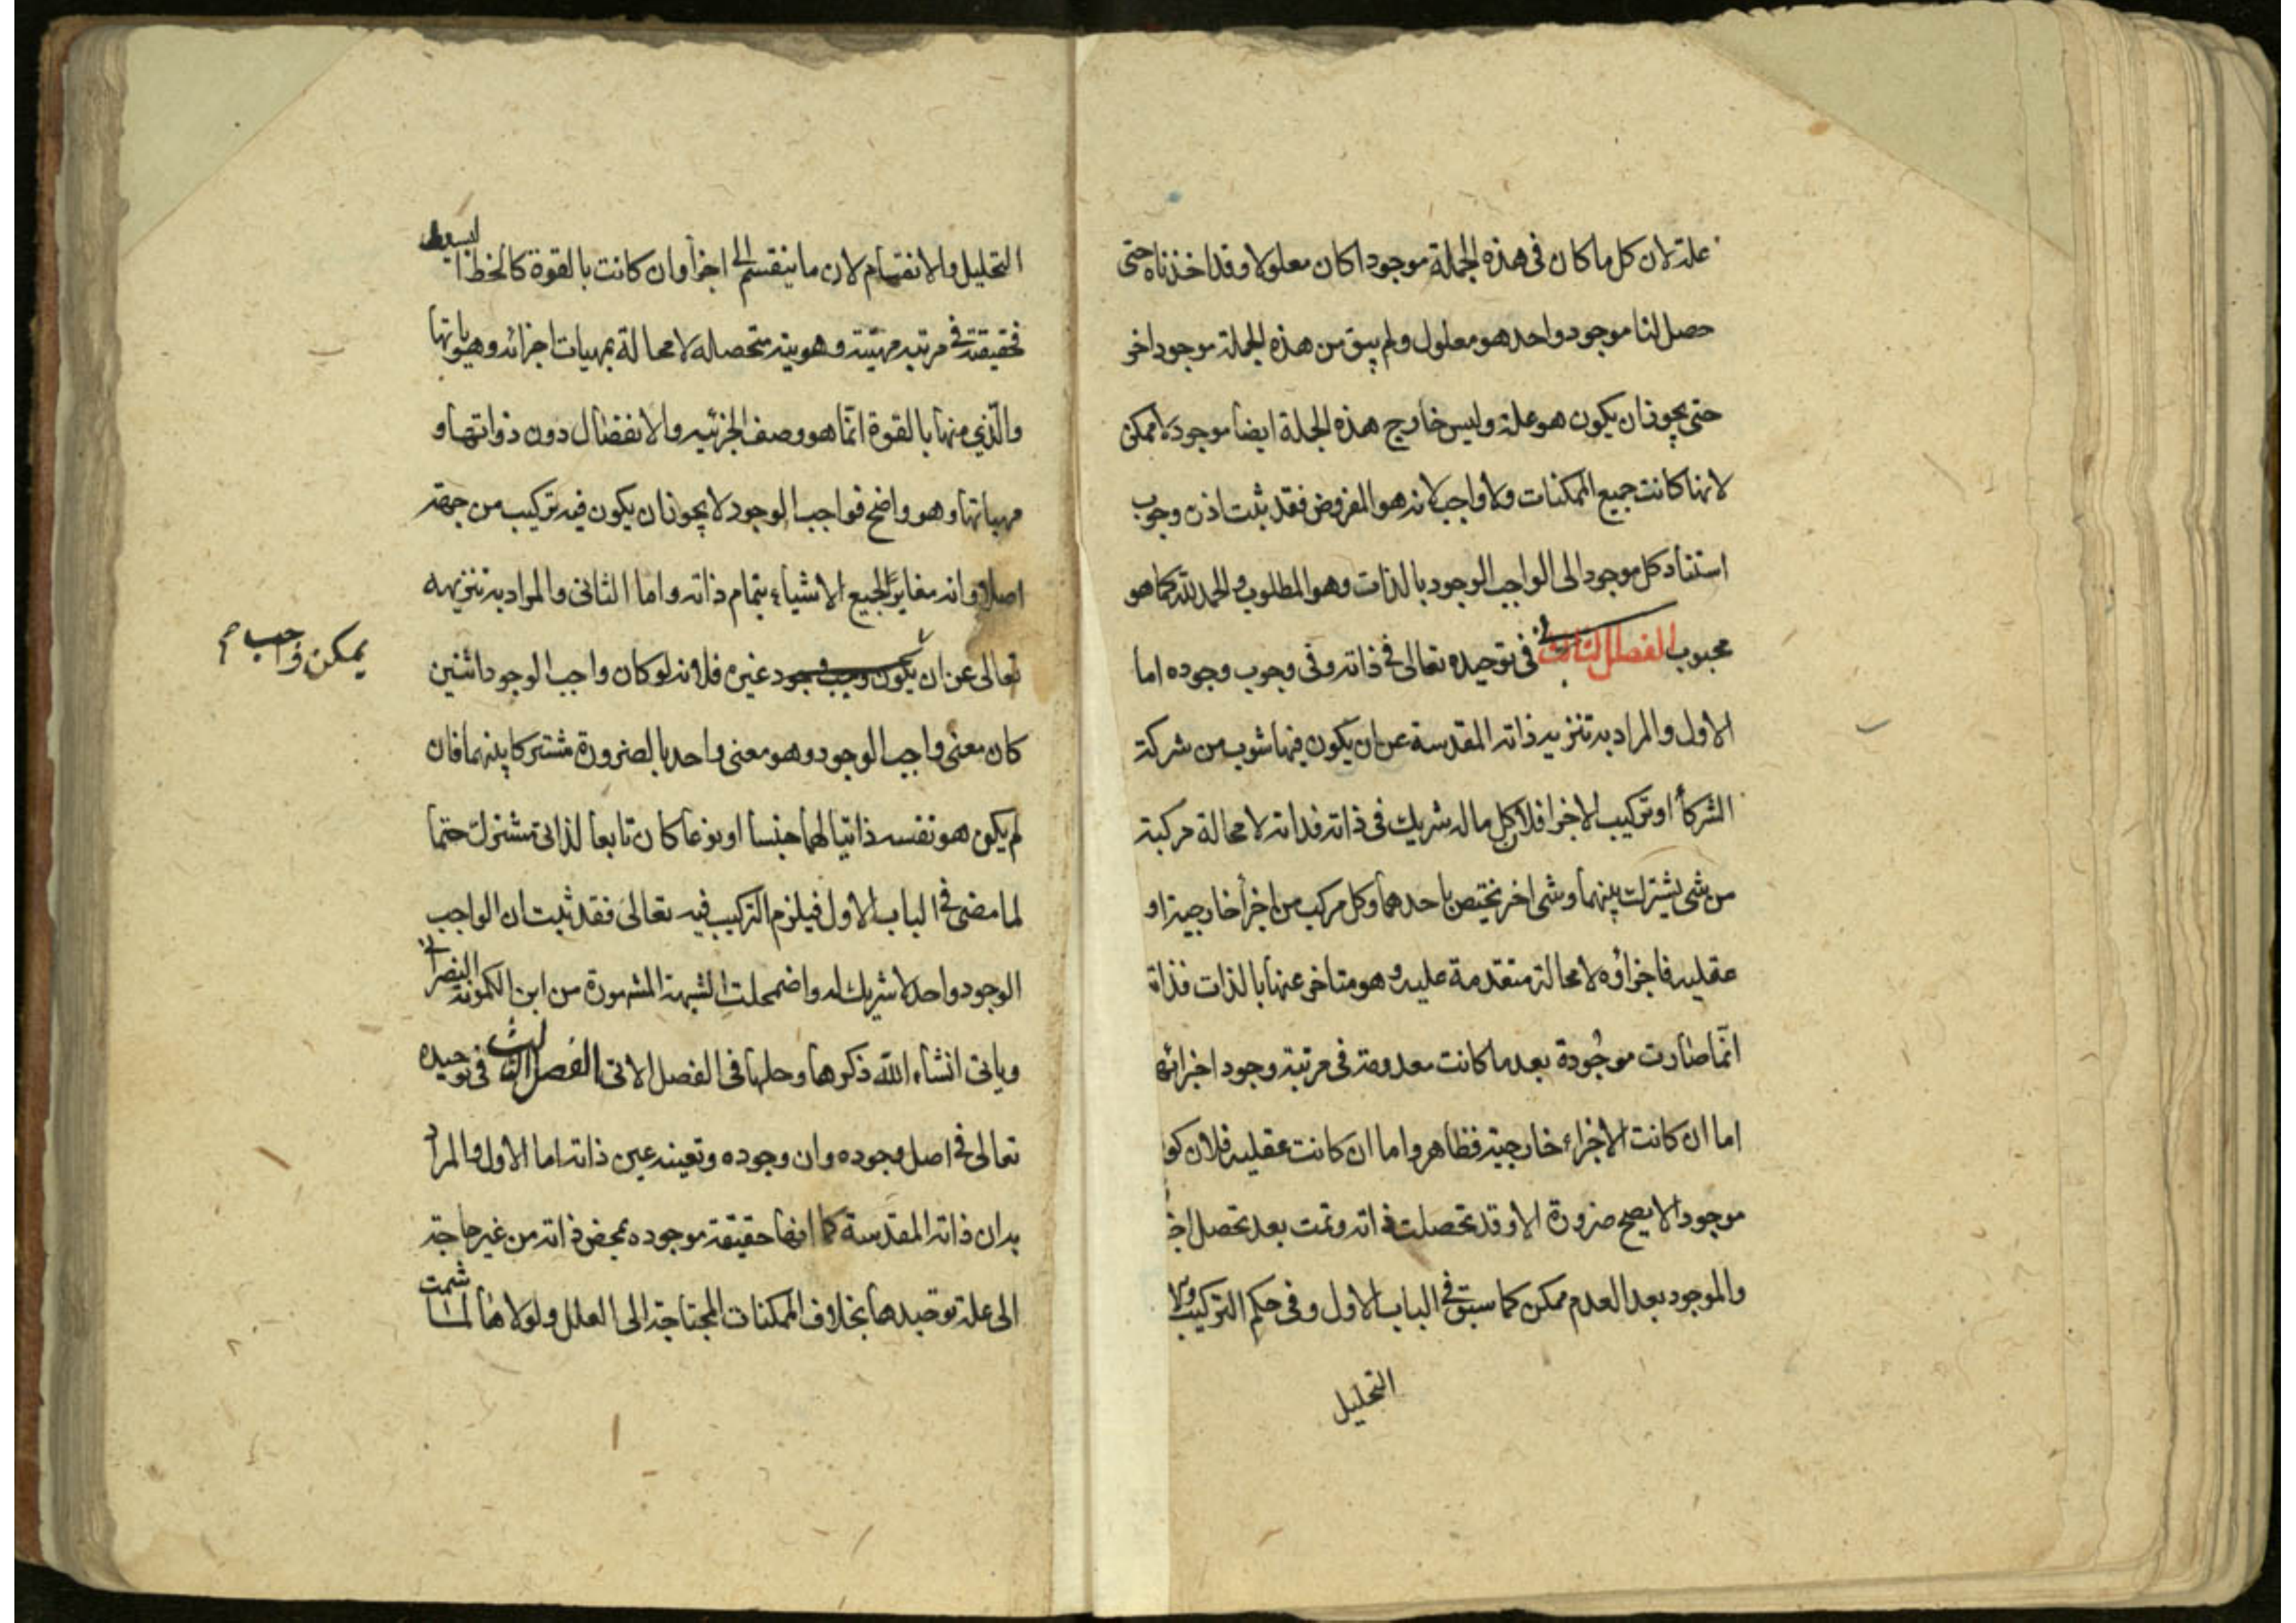 علة لان كل ما كان فى هذه الجملة موجودا كان معلولا وقد اخذناه حتى
حصل لنا موجود واحد هو معلول ولم يبق من هذه الجملة موجود اخر
حتى يجوز ان يكون هو علة وليس خارج هذه الجملة ايضا موجود لا ممكن
لانها كانت جميع الممكنات ولا واجب لانه هو المفروض فقد ثبت اذن وجوب
استناد كل موجود الى الواجب الوجود بالذات وهو المطلوب والحمد لله كما هو
محبوب الفصل الثانى فى توحيده تعالى فى ذاته وفى وجوب وجوده اما
الاول والمراد به تنزيه ذاته المقدسة عن ان يكون فيها شوب من شركة
الشركأ او تركيب الاجزا فلان كل ما له شريك فى ذاته فذاته لا محالة مركبة
من شى يشترك بينهما وشى اخر يختص باحدهما وكل مركب من اجزأ خارجية او
عقليه فاجزاؤه لا محالة متقدمة عليه وهو متاخر عنها بالذات فذاته
انّما صارت موجُودة بعد ما كانت معدومة فى مرتبة وجود اجزائه
اما ان كانت الاجزاء خارجية فظاهر واما ان كانت عقليه فلان كو
موجودا لا يصح ضرورة الا وقد تحصلت ذاته وتمت بعد تحصل اجز
والموجود بعد العدم ممكن كما سبق فى الباب الاول وفى حكم التركيب
التحليل
التحليل والانقسام لان ما ينقسم الى اجزأ وان كانت بالقوة كالخط البسيط
فحقيقته فى مرتبه مهيّته وهويته متحصله لا محالة بمهيات اجزائه وهوياتها
والّذي منها بالقوة انّما هو وصف الجزئيه والانفصال دون ذواتها و
مهياتها وهو واضح فواجب الوجود لا يجوز ان يكون فيه تركيب من جهة
اصلا وانه مغاير لجميع الاشياء بتمام ذاته واما الثانى والمراد به تنزيهه
تعالى عن ان يكون وجب وجود غيره فلانه لو كان واجب الوجود اثنين
يمكن واجب
كان معنى واجب الوجود وهو معنى واحد بالضرورة مشتركا بينهما فان
لم يكن هو نفسه ذاتيا لهما جنسا او نوعا كان تابعا لذاتى مشترك حتما
لما مضى فى الباب الاول فيلزم التركيب فيه تعالى فقد ثبت ان الواجب
الوجود واحد لا شريك له واضمحلت الشبهة المشهورة من ابن الكمونة النصرانى
وياتى انشاء الله ذكرها وحلها فى الفصل الاتى الفصل الثالث فى توحيده
تعالى فى اصل وجوده وان وجوده وتعينه عين ذاته اما الاول والمراد
به ان ذاته المقدسة كما انها حقيقة موجوده بمحض ذاته من غير حاجة
الى علة توجدها بخلاف الممكنات المحتاجة الى العلل ولولاها لما شمت